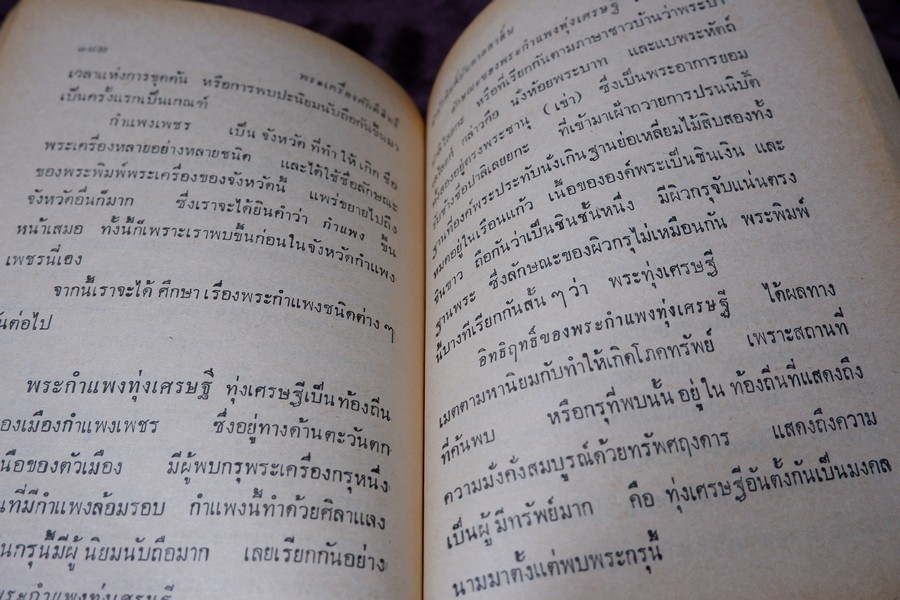 ๑๙๒
พระเครื่องศักดิ์สิทธิ์
เวลาแห่งการขุดค้น หรือการพบปะนิยมนับถือกันขึ้นมา
เป็นครั้งแรกเป็นเกณฑ์
กำแพงเพชร เป็นจังหวัดที่ทำให้เกิดชื่อ
พระเครื่องหลายอย่างหลายชนิด และได้ใช้ชื่อลักษณะ
ของพระพิมพ์พระเครื่องของจังหวัดนี้ แพร่ขยายไปถึง
จังหวัดอื่นก็มาก ซึ่งเราจะได้ยินคำว่า กำแพง ขึ้น
หน้าเสมอ ทั้งนี้ก็เพราะเราพบขึ้นก่อนในจังหวัดกำแพง
เพชรนี่เอง
จากนี้เราจะได้ศึกษาเรื่องพระกำแพงชนิดต่าง ๆ
กันต่อไป
พระกำแพงทุ่งเศรษฐี ทุ่งเศรษฐีเป็นท้องถิ่น
ของเมืองกำแพงเพชร ซึ่งอยู่ทางด้านตะวันตก
เหนือของตัวเมือง มีผู้พบกรุพระเครื่องกรุหนึ่ง
ที่มีกำแพงล้อมรอบ กำแพงนี้ทำด้วยศิลาแลง
กรุนี้มีผู้นิยมนับถือมาก เลยเรียกกันอย่าง
พระกำแพงทุ่งเศรษฐี
ลักษณะของพระกำแพงทุ่งเศรษฐี
หรือที่เรียกกันตามภาษาชาวบ้านว่าพระป่า
กล่าวคือ นั่งห้อยพระบาท และแบพระหัตถ์
ทั้งสองอยู่ตรงพระชานุ (เข่า) ซึ่งเป็นพระอาการยอม
ช้างชื่อปาลิเลยยกะ ที่เข้ามาเฝ้าถวายการปรนนิบัติ
ฐานที่องค์พระประทับนั่งเกินฐานย่อเหลี่ยมไม้สิบสองทั้ง
หมดอยู่ในเรือนแก้ว เนื้อขององค์พระเป็นชินเงิน และ
ชินขาว ถือกันว่าเป็นชินชั้นหนึ่ง มีผิวกรุจับแน่นตรง
ฐานพระ ซึ่งลักษณะของผิวกรุไม่เหมือนกัน พระพิมพ์
นี้บางทีเรียกกันสั้น ๆ ว่า พระทุ่งเศรษฐี
อิทธิฤทธิ์ของพระกำแพงทุ่งเศรษฐี ได้ผลทาง
เมตตามหานิยมกับทำให้เกิดโภคทรัพย์ เพราะสถานที่
ที่ค้นพบ หรือกรุที่พบนั้นอยู่ในท้องถิ่นที่แสดงถึง
ความมั่งคั่งสมบูรณ์ด้วยทรัพศฤงคาร แสดงถึงความ
เป็นผู้มีทรัพย์มาก คือ ทุ่งเศรษฐีอันตั้งกันเป็นมงคล
นามมาตั้งแต่พบพระกรุนี้